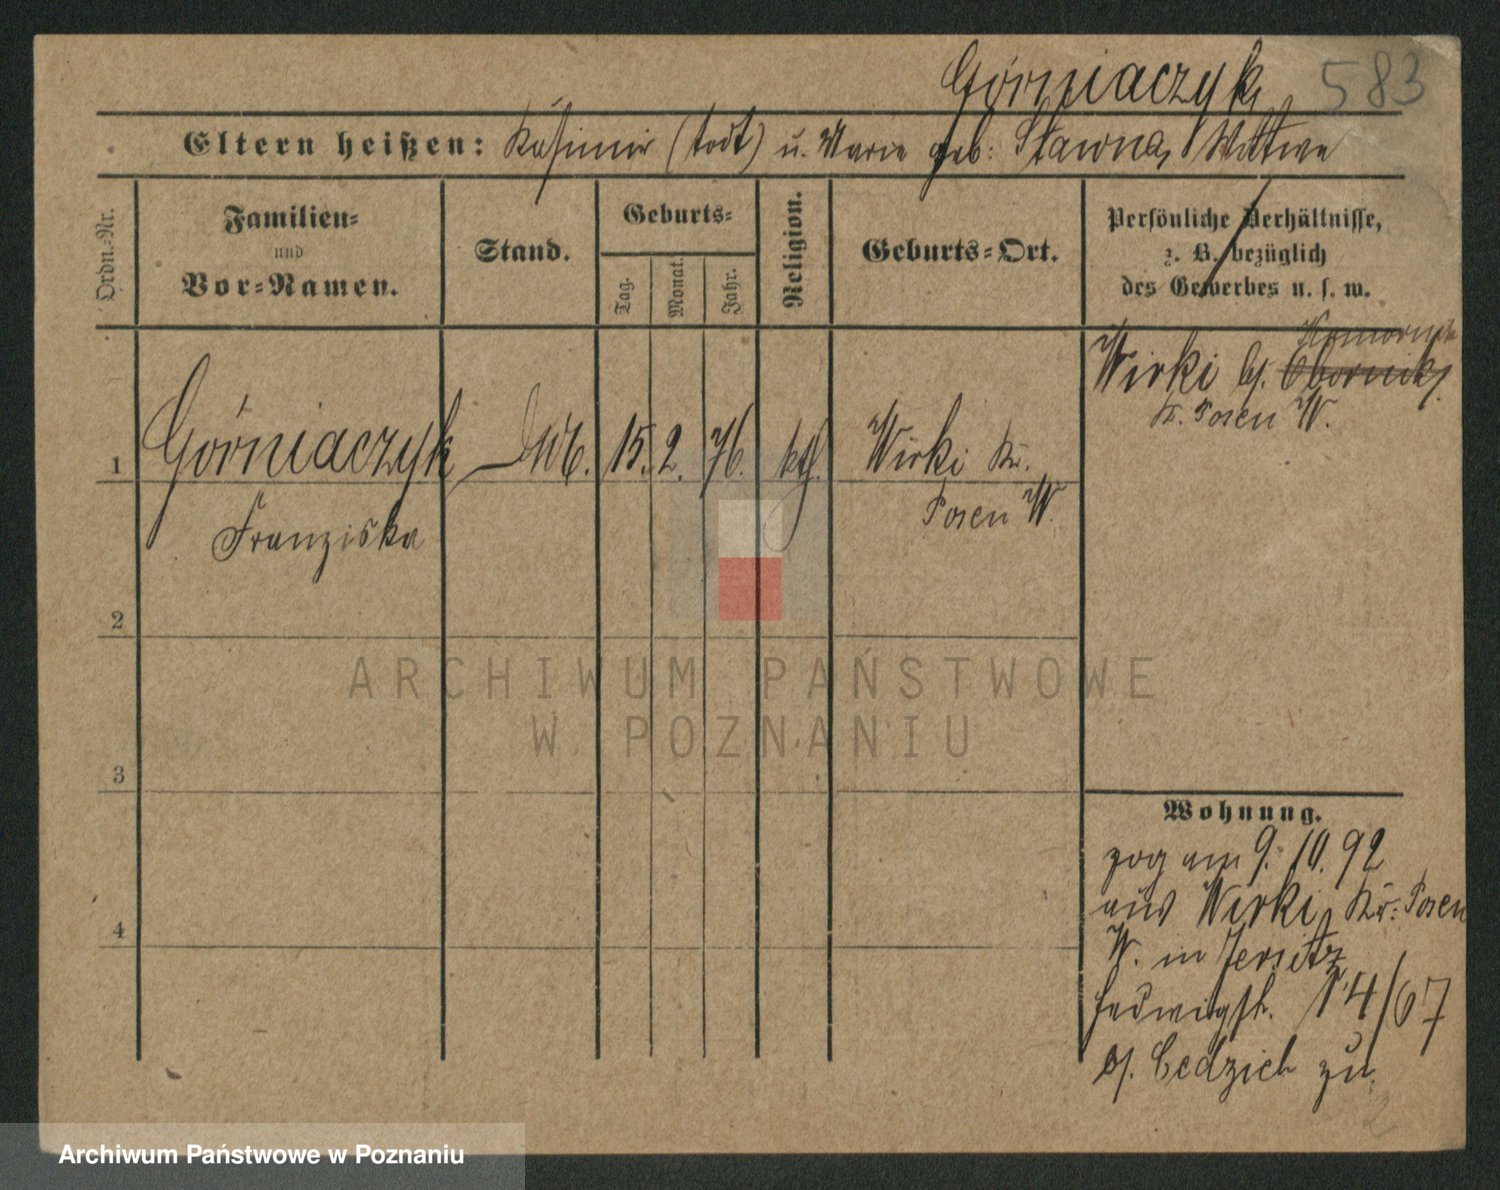 Górniaczyk 583
Eltern heißen: Kasimir (todt) u. Marie geb: Stawna, Wittwe
Ordn.-Nr.
Familien-
und
Vor-Namen.
Stand.
Geburts-
Tag.
Monat.
Jahr.
Religion.
Geburts-Ort.
Persönliche Verhältnisse,
z. B. bezüglich
des Gewerbes u. s. w.
1
Górniaczyk
Franziska
15. 2. 76. kth.
Wirki Kr.
Posen W.
Komornik
Wirki b/. Obornik/.
Kr. Posen W.
2
3
4
Wohnung.
zog am 9. 10. 92
aus Wirki, Kr: Posen
W. in Jersitz
Hedwigstr. 14/67
b/. Cedzich zu.
2
ARCHIWUM PAŃSTWOWE
W POZNANIU
Archiwum Państwowe w Poznaniu